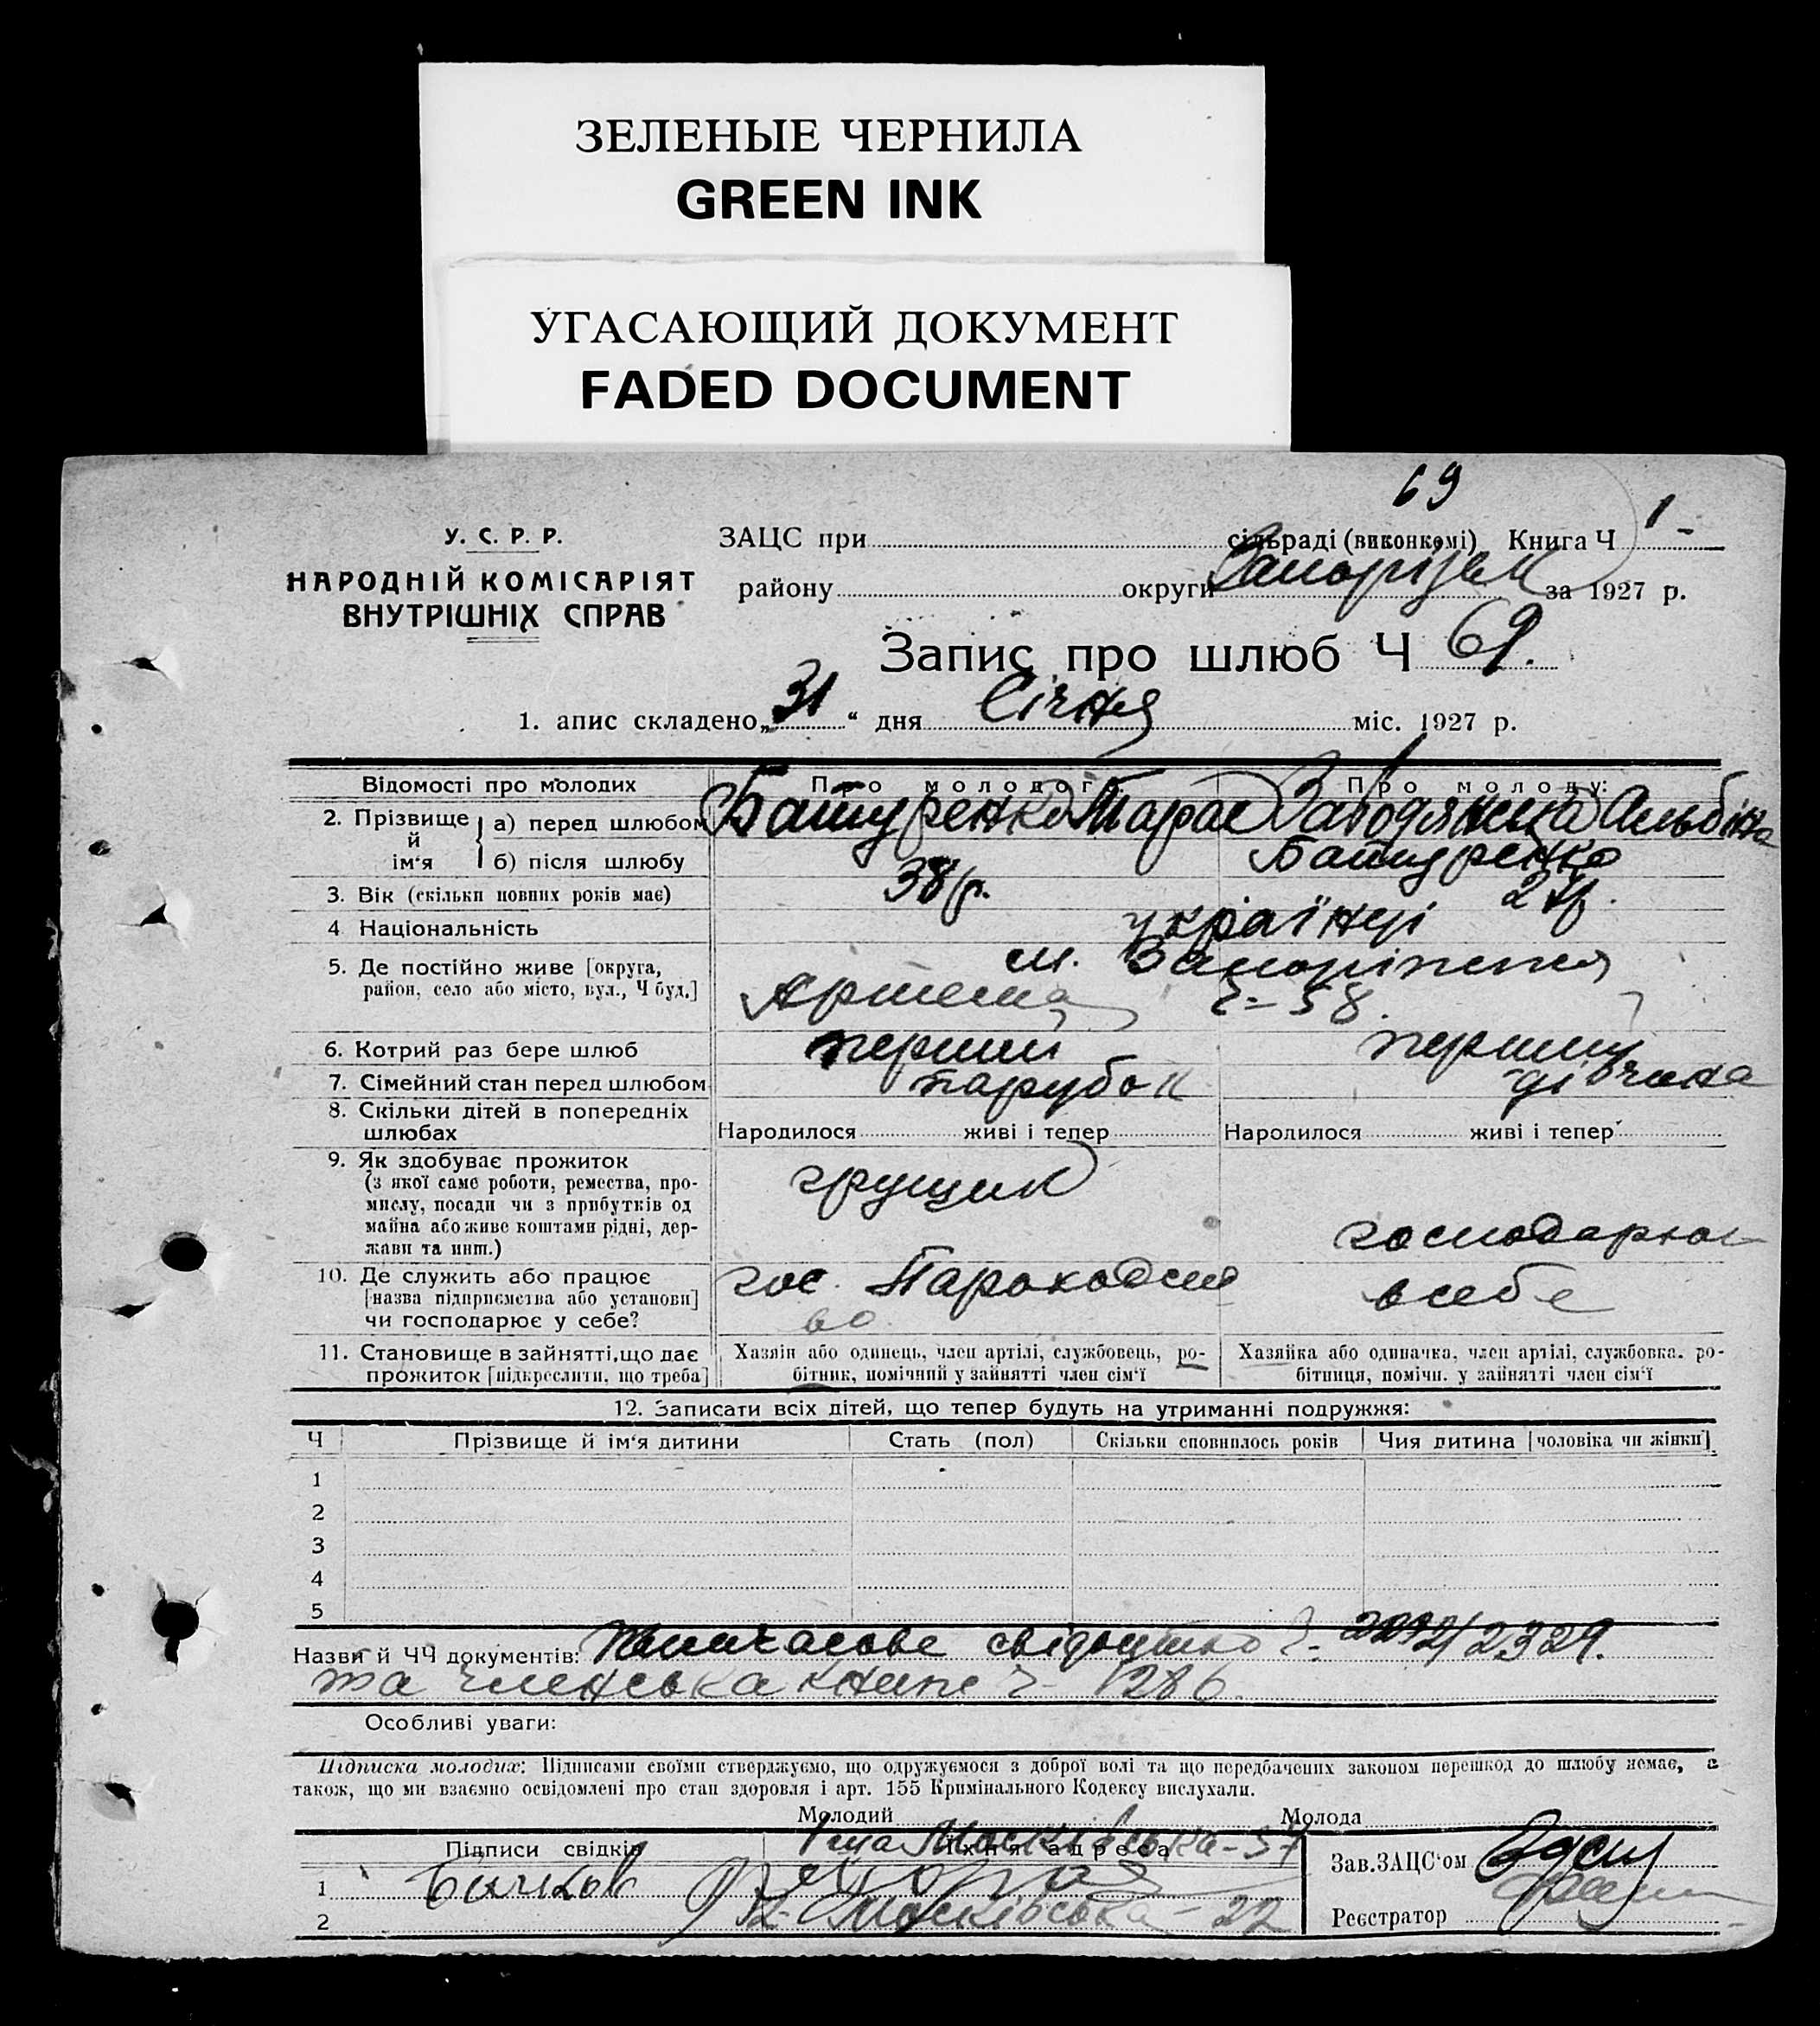 ЗЕЛЕНЫЕ ЧЕРНИЛА
GREEN INK
УГАСАЮЩИЙ ДОКУМЕНТ
FADED DOCUMENT
69
У. С. Р. Р.
НАРОДНІЙ КОМІСАРІЯТ
ВНУТРІШНІХ СПРАВ
ЗАЦС при сільраді (виконкомі) Книга Ч 1-
району округи Запорізьк за 1927 р.
Запис про шлюб Ч 69.
1. апис складено „31“ дня Січня міс. 1927 р.
Відомості про молодих Про молодого: Про молоду:
2. Прізвище й ім'я
а) перед шлюбом Батуренко Тарас Заводянська Альбіна
б) після шлюбу Батуренко
3. Вік (скільки повних років має) 38 р.
4 Національність українці
5. Де постійно живе [округа, район, село або місто, вул., Ч буд.] м. Запоріжжя
Артема Ч- 58.
6. Котрий раз бере шлюб перший перший
7. Сімейний стан перед шлюбом парубок дівчина
8. Скільки дітей в попередніх шлюбах Народилося живі і тепер Народилося живі і тепер
9. Як здобуває прожиток
(з якої саме роботи, ремества, про-
мислу, посади чи з прибутків од
майна або живе коштами рідні, дер-
жави та инш.)
грущик
господарює
10. Де служить або працює
[назва підприємства або установи]
чи господарює у себе?
гос. Пароходст
во.
в себе
11. Становище в зайнятті, що дає
прожиток [підкреслити, що треба]
Хазяїн або одинець, член артілі, службовець, ро-
бітник, помічний у зайнятті член сім'ї
Хазяйка або одиначка, член артілі, службовка, ро-
бітниця, помічн. у зайнятті член сім'ї
12. Записати всіх дітей, що тепер будуть на утриманні подружжя:
Ч Прізвище й ім'я дитини Стать (пол) Скільки сповнилось років Чия дитина [чоловіка чи жінки]
1
2
3
4
5
Назви й ЧЧ документів: Тимчасове свідоцтво Ч- 2329.
та членська книж Ч- 1286.
Особливі уваги:
Підписка молодих: Підписами своїми стверджуємо, що одружуємося з доброї волі та що передбачених законом перешкод до шлюбу немає, а
також, що ми взаємно освідомлені про стан здоровля і арт. 155 Кримінального Кодексу вислухали.
Молодий Молода
Підписи свідків Їхня адреса
Московська-37
1
2 Московська - 22
Зав.ЗАЦС'ом
Реєстратор